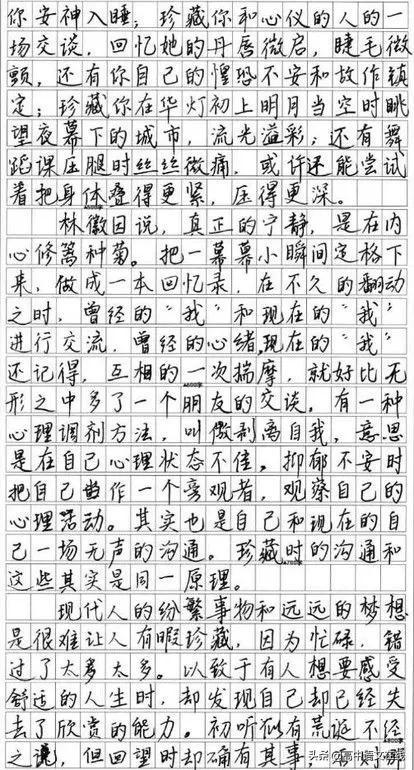 你安神入睡；珍藏你和心仪的人的一
场交谈，回忆她的丹唇微启，睫毛微
颤，还有你自己的惶恐不安和故作镇
定；珍藏你在华灯初上明月当空时眺
望夜幕下的城市，流光溢彩；还有舞
蹈课压腿时丝丝微痛，或许还能尝试
着把身体叠得更紧，压得更深。
林徽因说，真正的宁静，是在内
心修篱种菊。把一幕幕小瞬间定格下
来，做成一本回忆录，在不久的翻动
之时，曾经的“我”和现在的“我”
进行交流，曾经的心绪，现在的“我”
还记得，互相的一次揣摩，就好比无
形之中多了一个朋友的交谈。有一种
心理调剂方法，叫做剥离自我，意思
是在自己心理状态不佳，抑郁不安时
把自己当作一个旁观者，观察自己的
心理活动。其实也是自己和现在的自
己一场无声的沟通。珍藏时的沟通和
这些其实是同一原理。
现代人的纷繁事物和远远的梦想
是很难让人有暇珍藏，因为忙碌，错
过了太多太多。以致于有人想要感受
舒适的人生时，却发现自己却已经失
去了欣赏的能力。初听似有荒诞不经
之说，但回望时却确有其事。
头条@高中语文在线